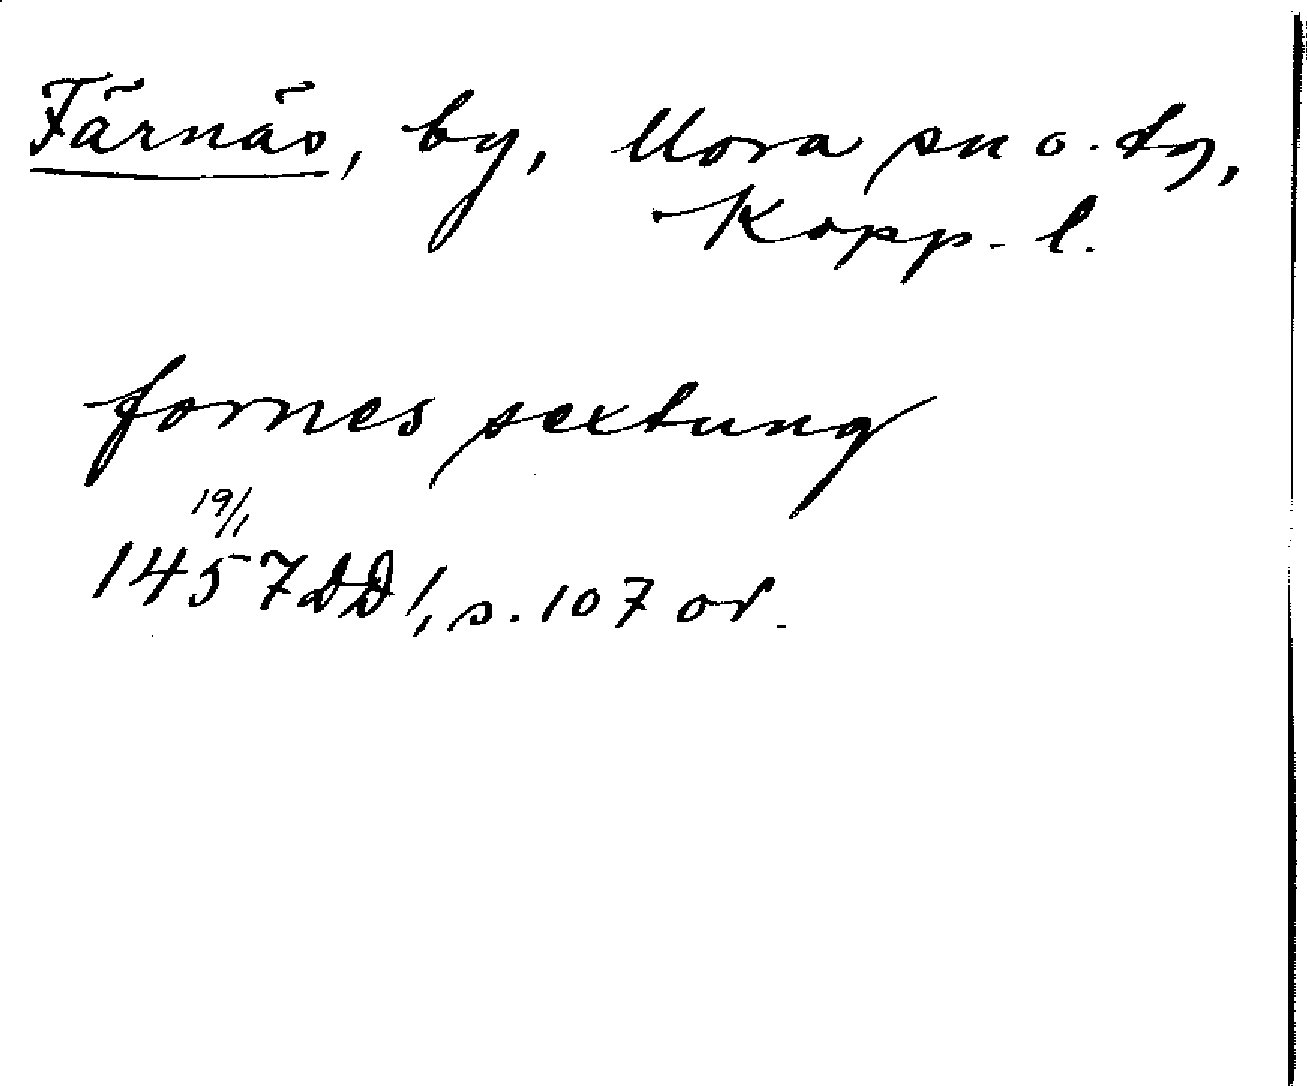 Färnäs, by, Mora sn o. tg,
Kopp. l.
fornes sextung
19/1
1457 DD 1, s. 107 or.